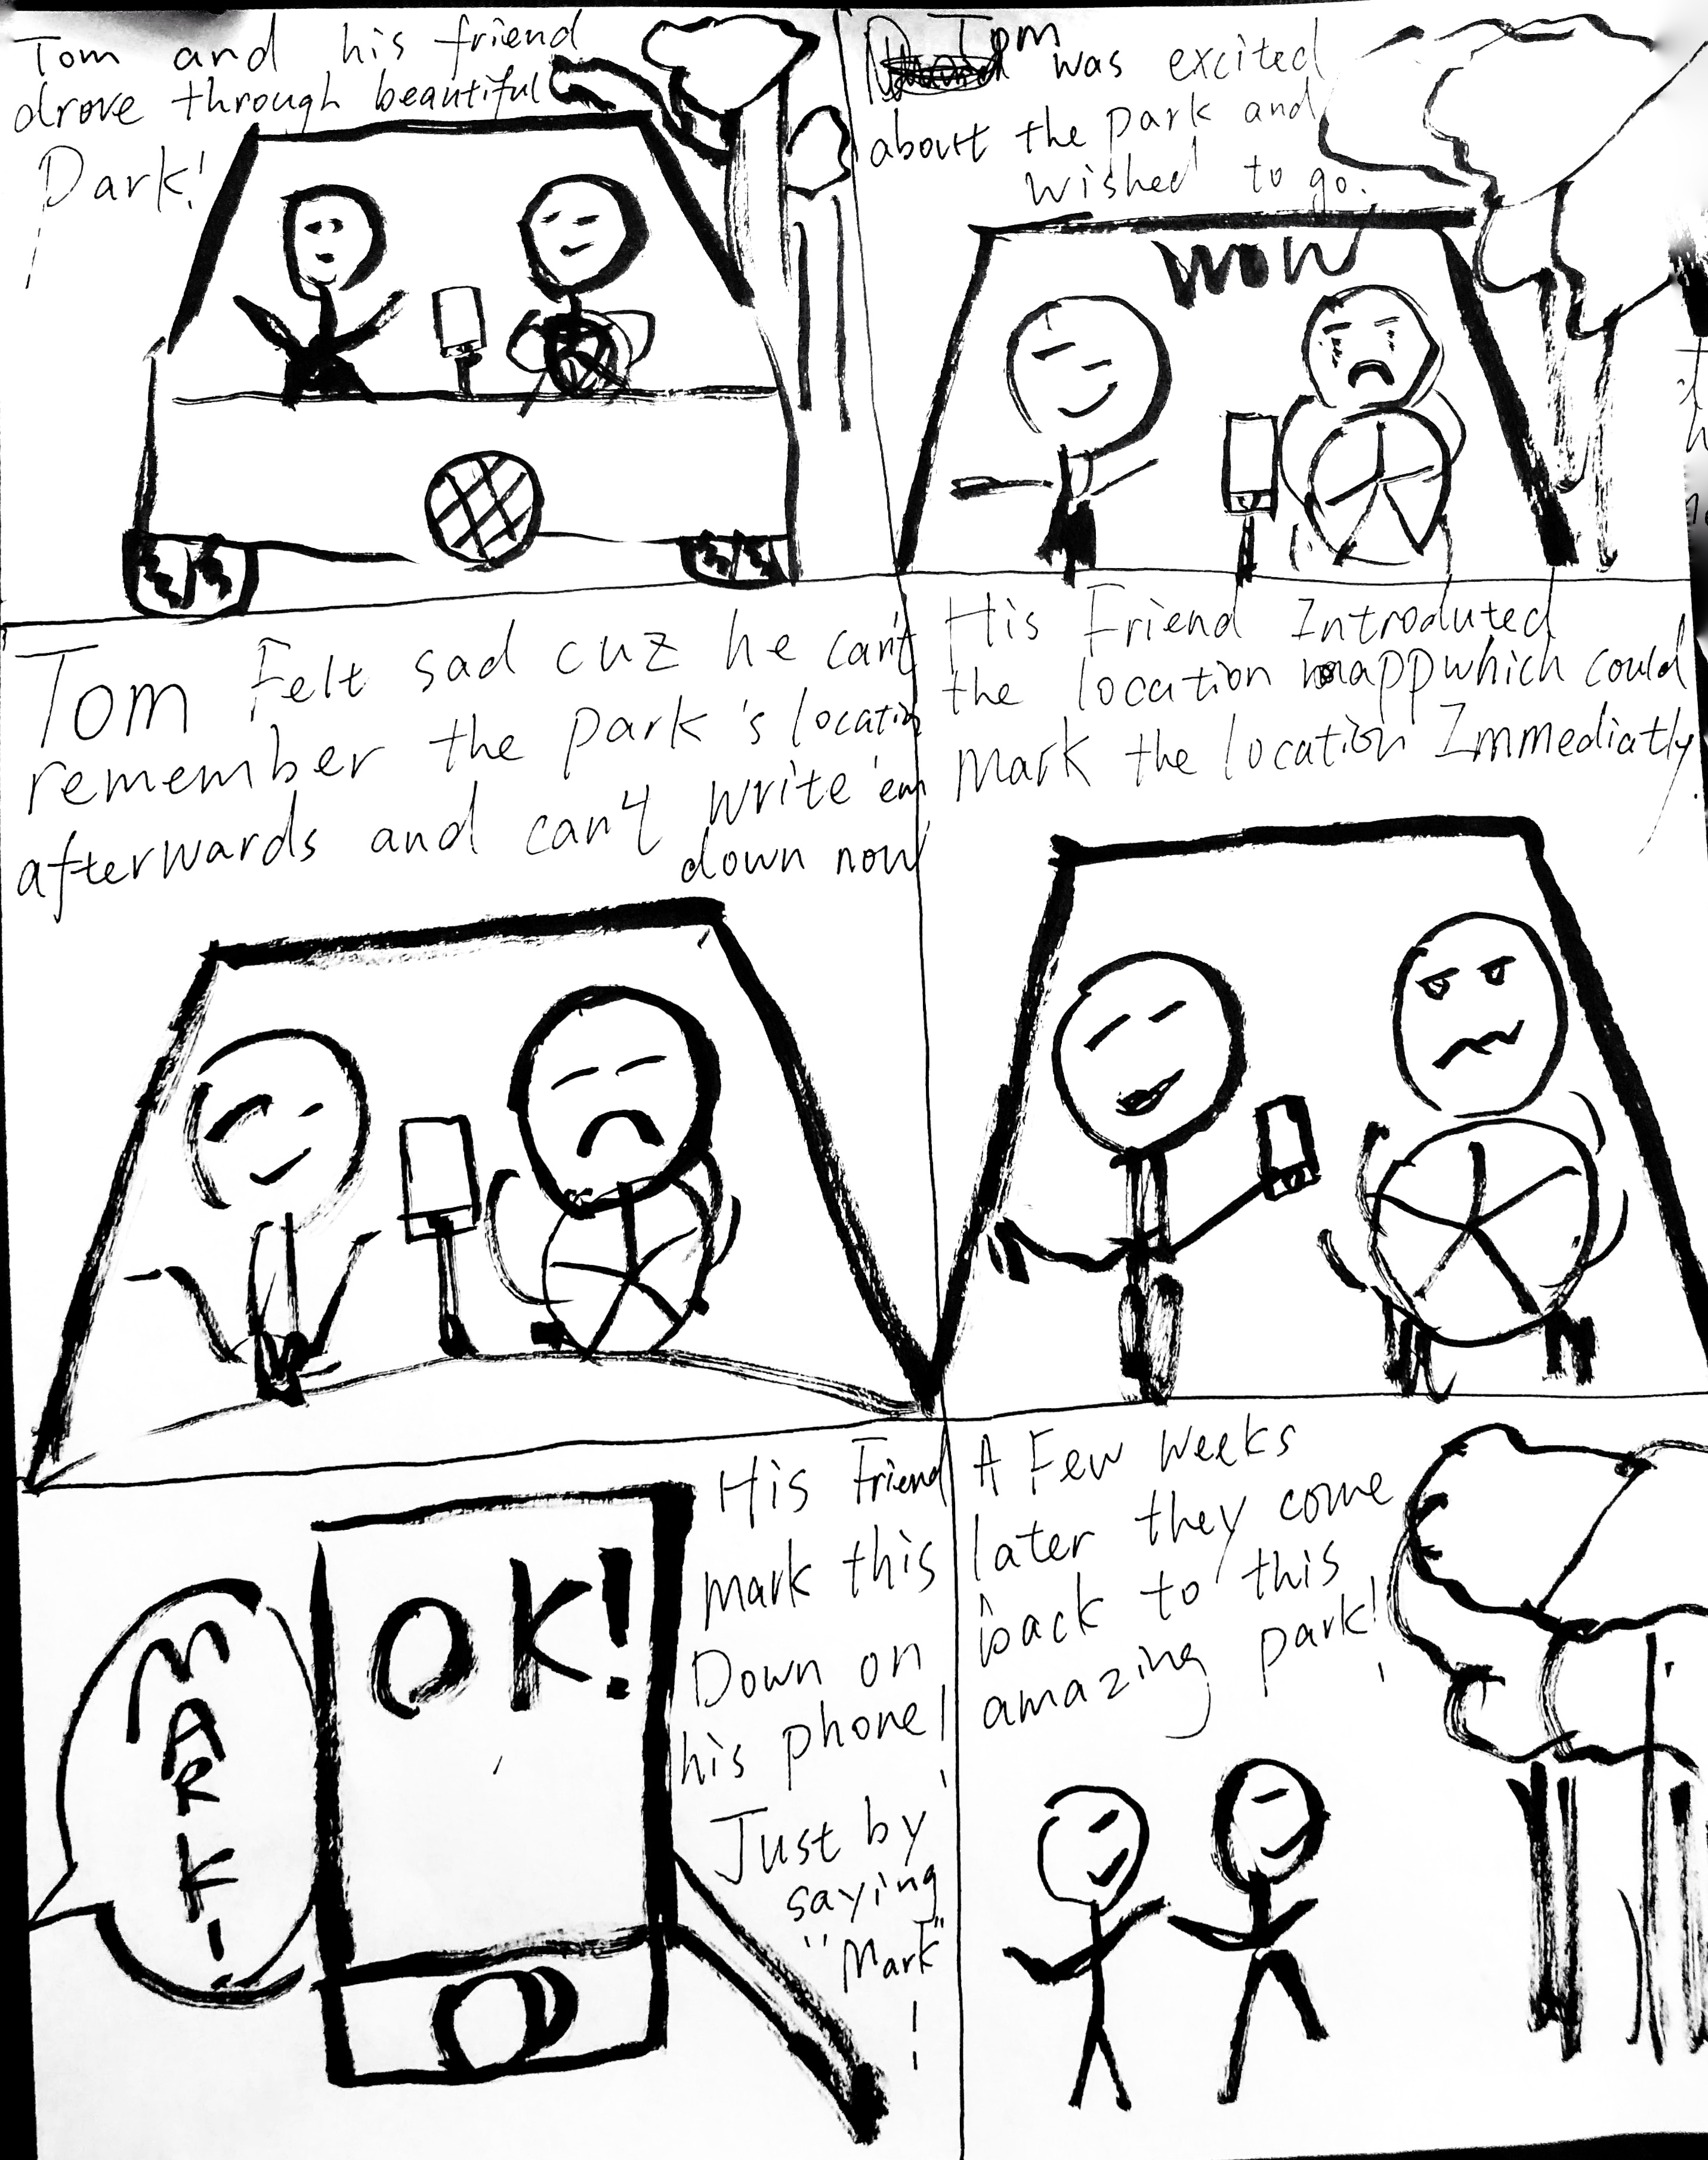 Tom and his friend
drove through beautiful
Park!
Tom was excited
about the park and
wished to go.
WOW
Tom Felt sad cuz he can't
remember the park's locatin
afterwards and can't write 'em
down now
His Friend Introduted
the location mapp which could
Mark the location Immediatly
OK!
MARK!
His Friend
mark this
Down on
his phone!
Just by
saying
"Mark"
!
A Few weeks
later they come
back to this
amazing park!